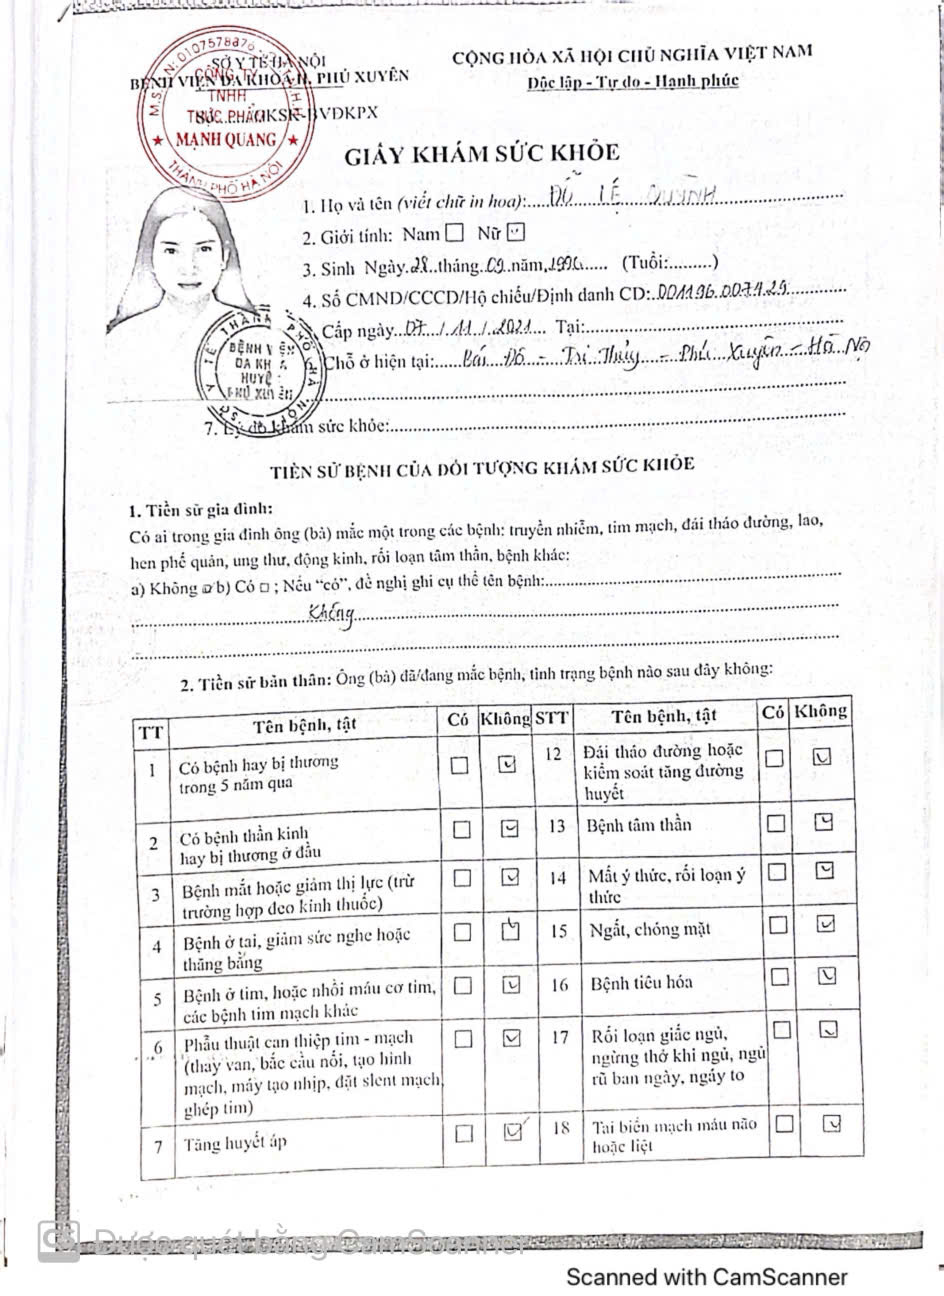 SỞ Y TẾ HÀ NỘI
BỆNH VIỆN ĐA KHOA H. PHÚ XUYÊN
GKSK-BVĐKPX
CỘNG HÒA XÃ HỘI CHỦ NGHĨA VIỆT NAM
Độc lập - Tự do - Hạnh phúc
M.S.D.N: 0107578876
CÔNG TY
TNHH
THỰC PHẨM
MẠNH QUANG
THÀNH PHỐ HÀ NỘI
GIẤY KHÁM SỨC KHỎE
1. Họ và tên (viết chữ in hoa): ĐỖ LỆ QUỲNH
2. Giới tính: Nam ☐ Nữ ☑
3. Sinh Ngày 28 tháng 09 năm 1996 (Tuổi:.........)
4. Số CMND/CCCD/Hộ chiếu/Định danh CD: 001196.007429
Cấp ngày 07 / 11 / 2021 Tại:
Chỗ ở hiện tại: Đô - Tri Thủy - Phú Xuyên - Hà Nộ
BỆNH VIỆN
ĐA KHOA
HUYỆN
PHÚ XUYÊN
7. Lý do khám sức khỏe:
TIỀN SỬ BỆNH CỦA ĐỐI TƯỢNG KHÁM SỨC KHỎE
1. Tiền sử gia đình:
Có ai trong gia đình ông (bà) mắc một trong các bệnh: truyền nhiễm, tim mạch, đái tháo đường, lao,
hen phế quản, ung thư, động kinh, rối loạn tâm thần, bệnh khác:
a) Không ☑ b) Có ☐ ; Nếu “có”, đề nghị ghi cụ thể tên bệnh:
Không
2. Tiền sử bản thân: Ông (bà) đã/đang mắc bệnh, tình trạng bệnh nào sau đây không:
TT Tên bệnh, tật Có Không STT Tên bệnh, tật Có Không
1 Có bệnh hay bị thương
trong 5 năm qua ☐ ☑
12 Đái tháo đường hoặc
kiểm soát tăng đường
huyết ☐ ☑
2 Có bệnh thần kinh
hay bị thương ở đầu ☐ ☑
13 Bệnh tâm thần ☐ ☑
3 Bệnh mắt hoặc giảm thị lực (trừ
trường hợp đeo kính thuốc) ☐ ☑
14 Mất ý thức, rối loạn ý
thức ☐ ☑
4 Bệnh ở tai, giảm sức nghe hoặc
thăng bằng ☐ ☑
15 Ngất, chóng mặt ☐ ☑
5 Bệnh ở tim, hoặc nhồi máu cơ tim,
các bệnh tim mạch khác ☐ ☑
16 Bệnh tiêu hóa ☐ ☑
6 Phẫu thuật can thiệp tim - mạch
(thay van, bắc cầu nối, tạo hình
mạch, máy tạo nhịp, đặt slent mạch,
ghép tim) ☐ ☑
17 Rối loạn giấc ngủ,
ngừng thở khi ngủ, ngủ
rũ ban ngày, ngáy to ☐ ☑
7 Tăng huyết áp ☐ ☑
18 Tai biến mạch máu não
hoặc liệt ☐ ☑
CS Được quét bằng CamScanner
Scanned with CamScanner